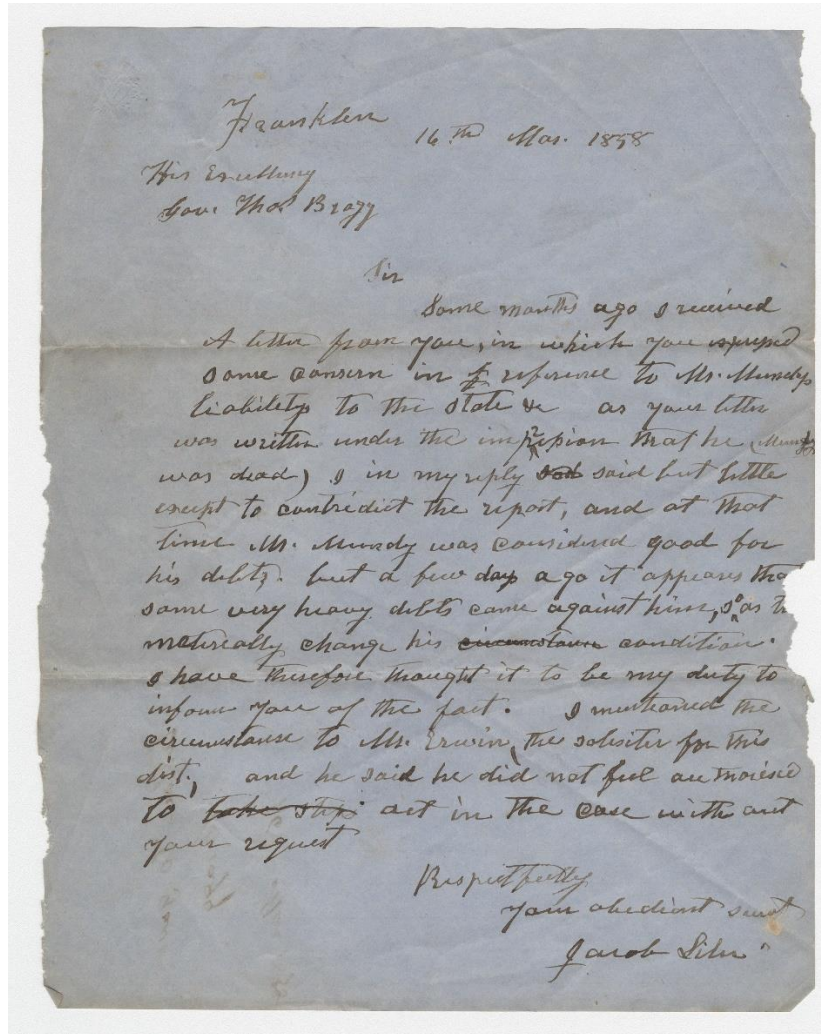 Franklin
16th Mar. 1858
His Excellency
Gov. Thos Bragg
Sir
Some months ago I received
A letter from you, in which you expressed
some consern in reference to Mr. Mundys
liability to the state &c as your letter
was written under the impression that he (Mundy
was dead) I in my reply said but little
except to contredict the report, and at that
time Mr. Mundy was considered good for
his debts. but a few days ago it appears tha
some very heavy debts came against him, so as t
meterically change his circumstance condition.
I have therefore thought it to be my duty to
inform you of the fact. I mentioned the
circumstance to Mr. Erwin, the solisiter for this
dist, and he said he did not feel authorised
to take steps act in the case without
your request
Respectfully
your obedient servt
Jacob Siler